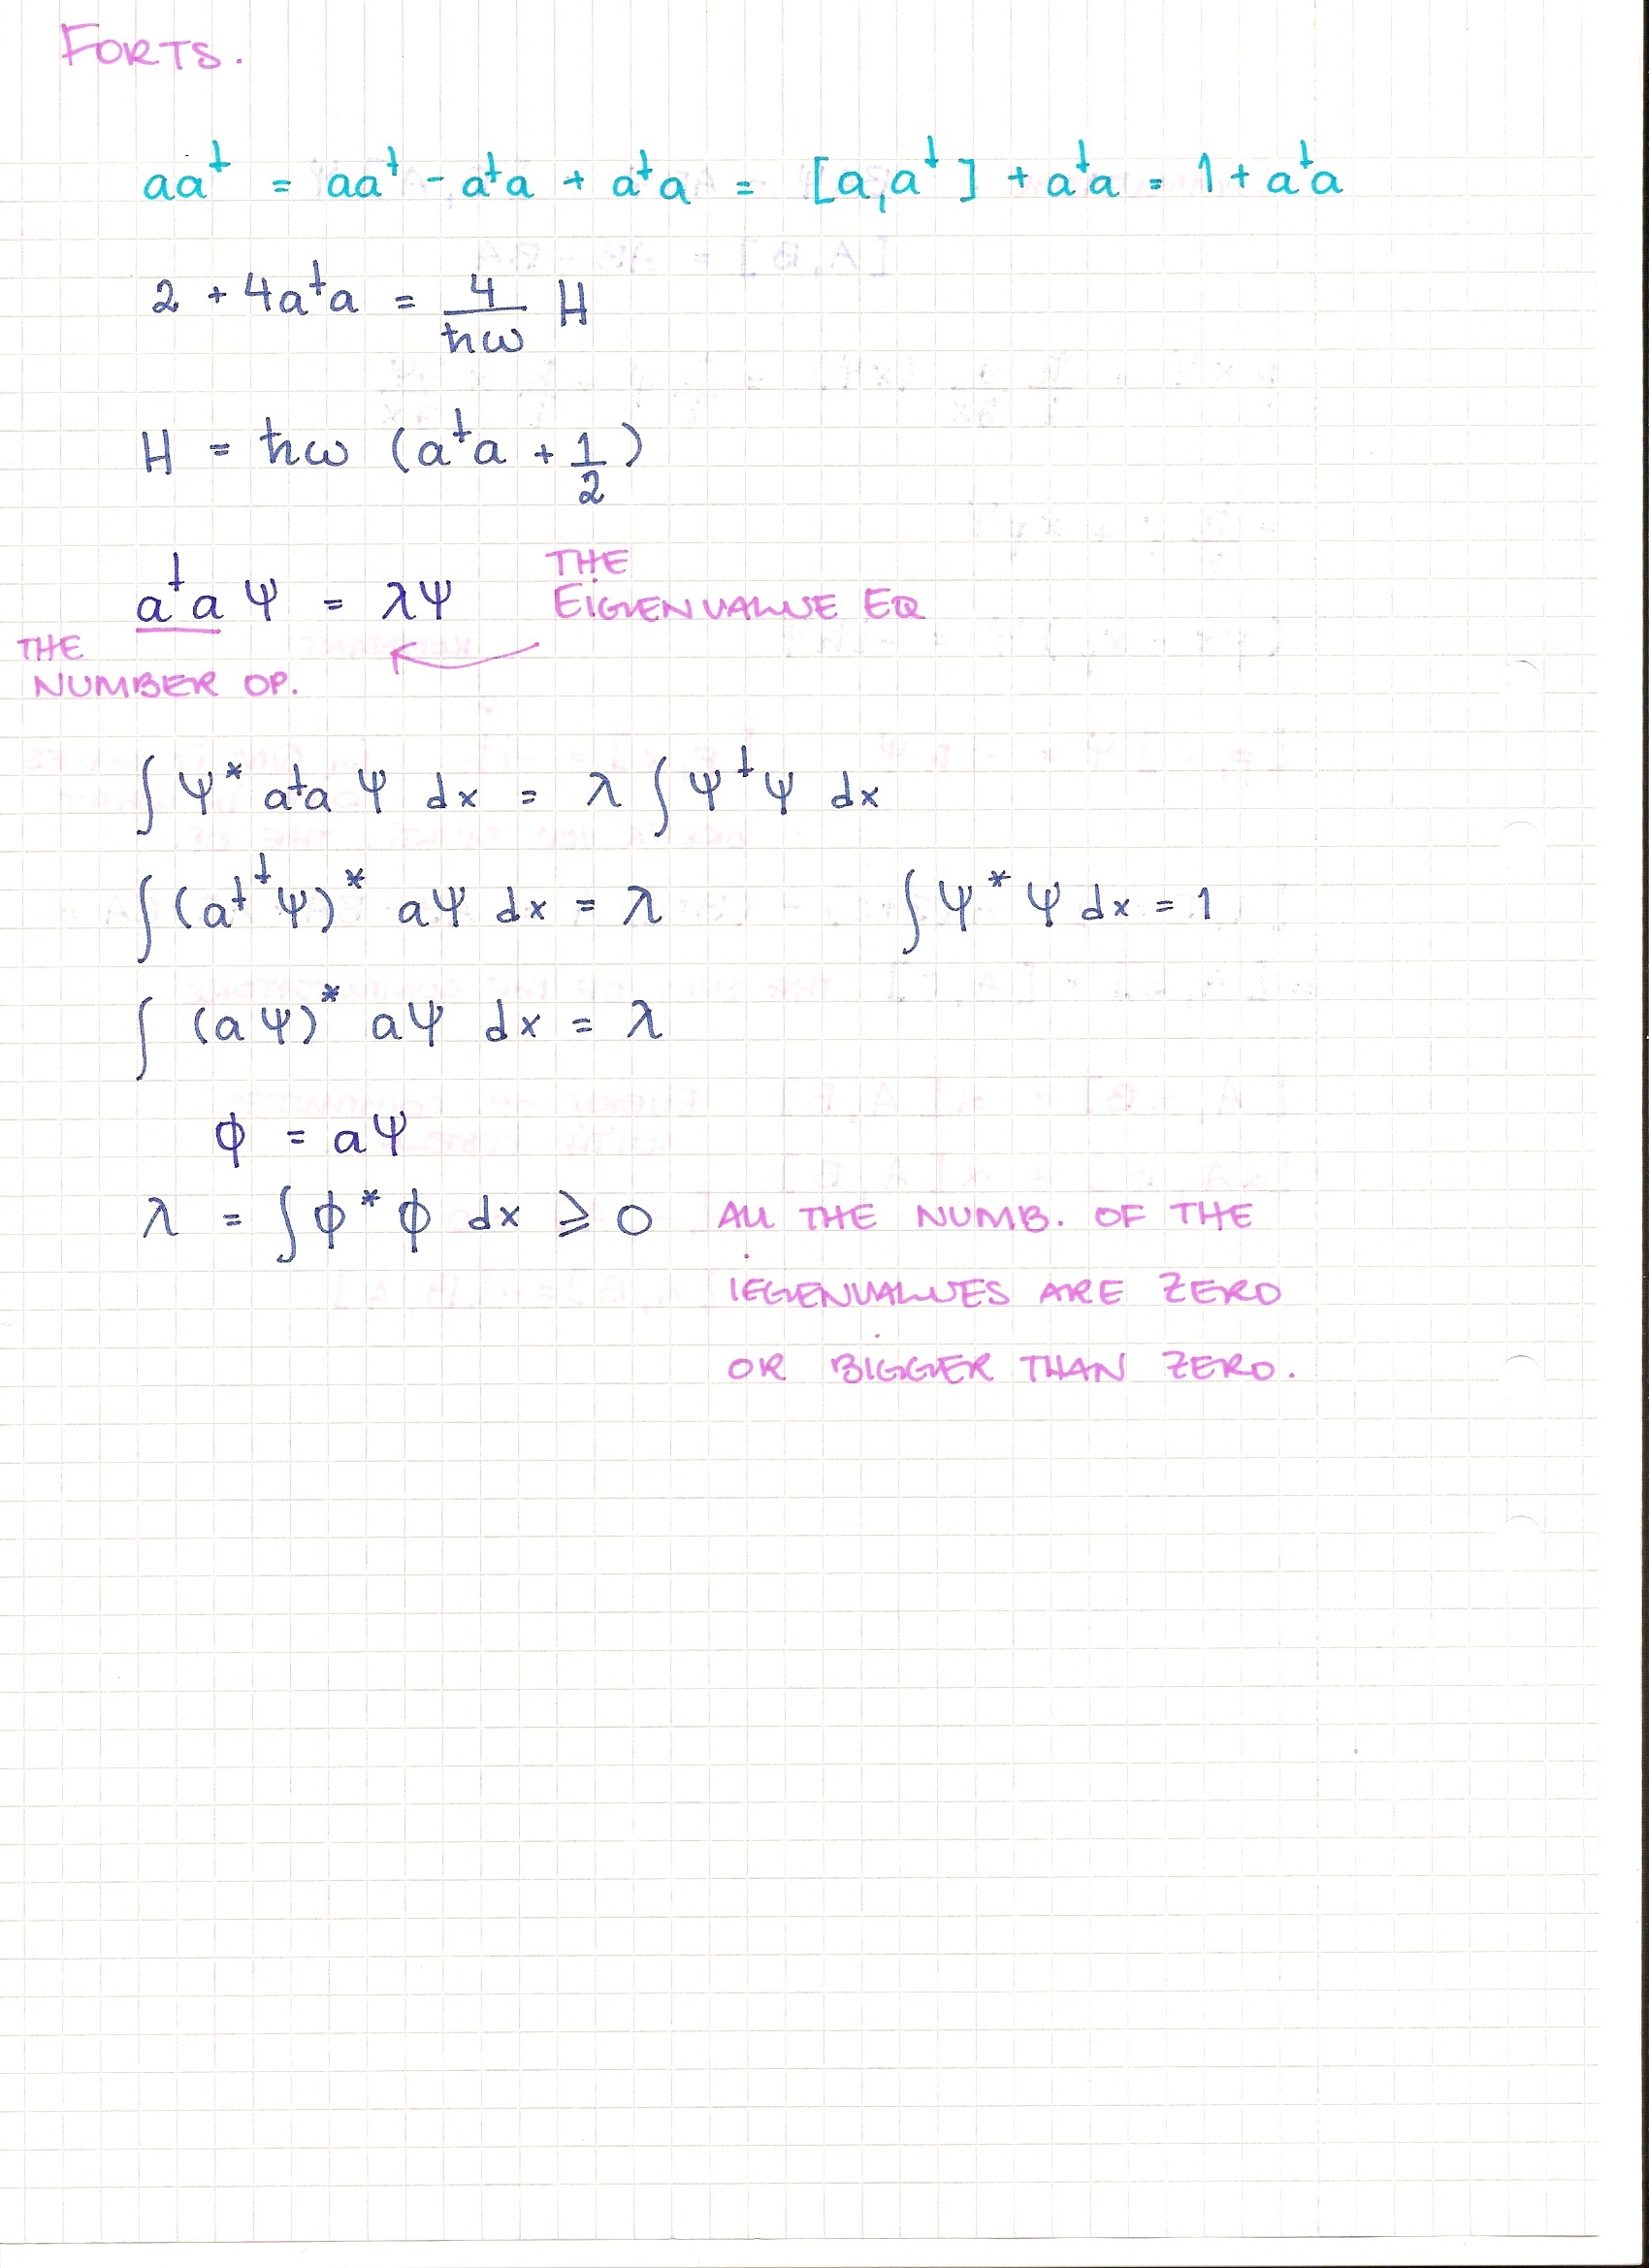 FORTS.
aa† = aa† - a†a + a†a = [a,a†] + a†a = 1 + a†a
2 + 4a†a = 4/ħω H
H = ħω (a†a + 1/2)
a†a Ψ = λΨ THE EIGENVALUE EQ
THE
NUMBER OP.
∫ Ψ* a†a Ψ dx = λ ∫ Ψ†Ψ dx
∫ (a††Ψ)* aΨ dx = λ ∫ Ψ*Ψ dx = 1
∫ (aΨ)* aΨ dx = λ
ϕ = aΨ
λ = ∫ ϕ*ϕ dx ⩾ 0 All THE NUMB. OF THE
IEGENVALUES ARE ZERO
OR BIGGER THAN ZERO.